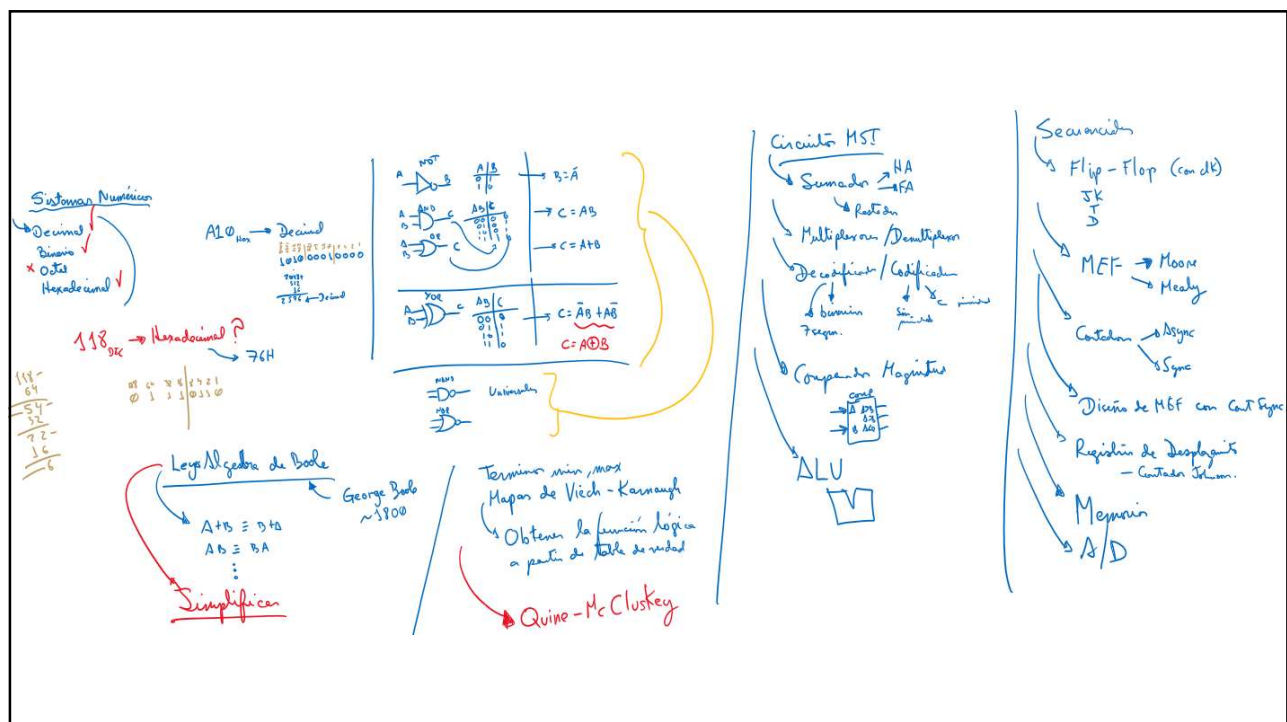 Sistemas Numéricos
Decimal
Binario
Octal
Hexadecimal
A10 Hex → Decimal
1010 0001 0000
118 DEC → Hexadecimal?
→ 76H
118-
64
54-
32
22-
16
6
NOT
A B
A B
0 1
1 0
→ B = Ā
AND
A B C
AB C
→ C = AB
OR
A B C
→ C = A+B
XOR
A B C
AB C
00
01
10
11
→ C = ĀB + AB̄
C = A⊕B
NAND
NOR
Universales
Leyes Algebra de Boole
George Boole
~1800
A+B ≡ B+A
AB ≡ BA
⋮
Simplificar
Terminos min, max
Mapas de Viech-Karnaugh
Obtener la función lógica
a partir de tabla de verdad
Quine-McCluskey
Circuitos MSI
Sumador → HA
→ FA
Restador
Multiplexores / Demultiplexor
Decodificador / Codificador
binario
7 segm.
Sin prioridad
C prioridad
Comparador Magnitud
COMP
A
B
ALU
Secuenciales
Flip-Flop (con clk)
JK
T
D
MEF → Moore
→ Mealy
Contadores → Async
→ Sync
Diseño de MEF con Cont Sync
Registros de Desplazamiento
- Contador Johnson.
Memoria
A/D